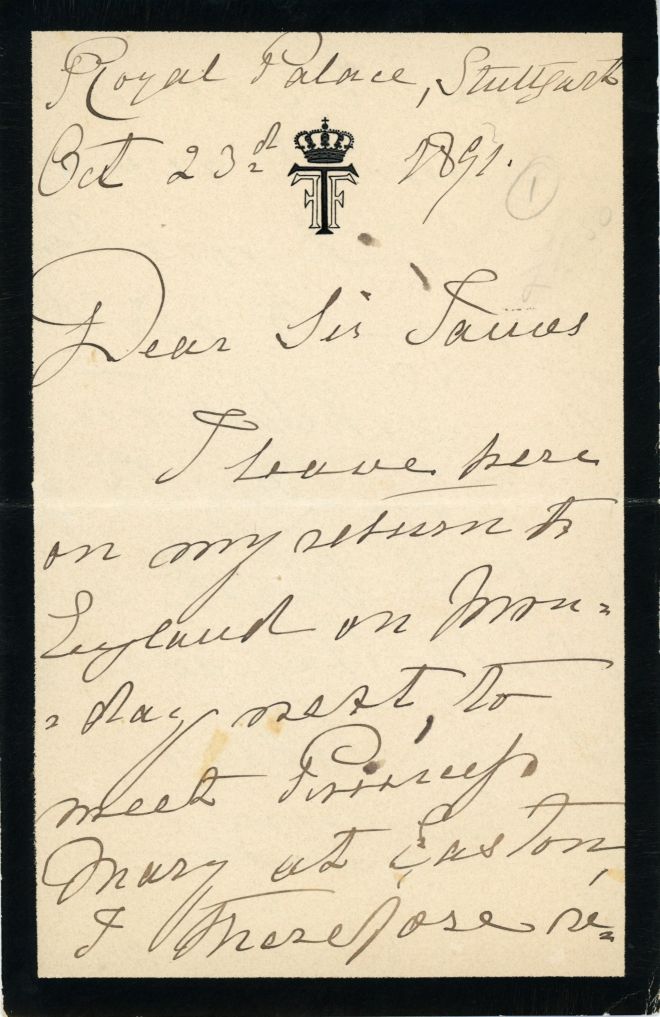 Royal Palace, Stuttgart
Oct 23rd 1891.
1
Dear Sir James
I leave here
on my return to
England on Mon=
=day next, to
meet Princess
Mary at Easton,
I therefore re=